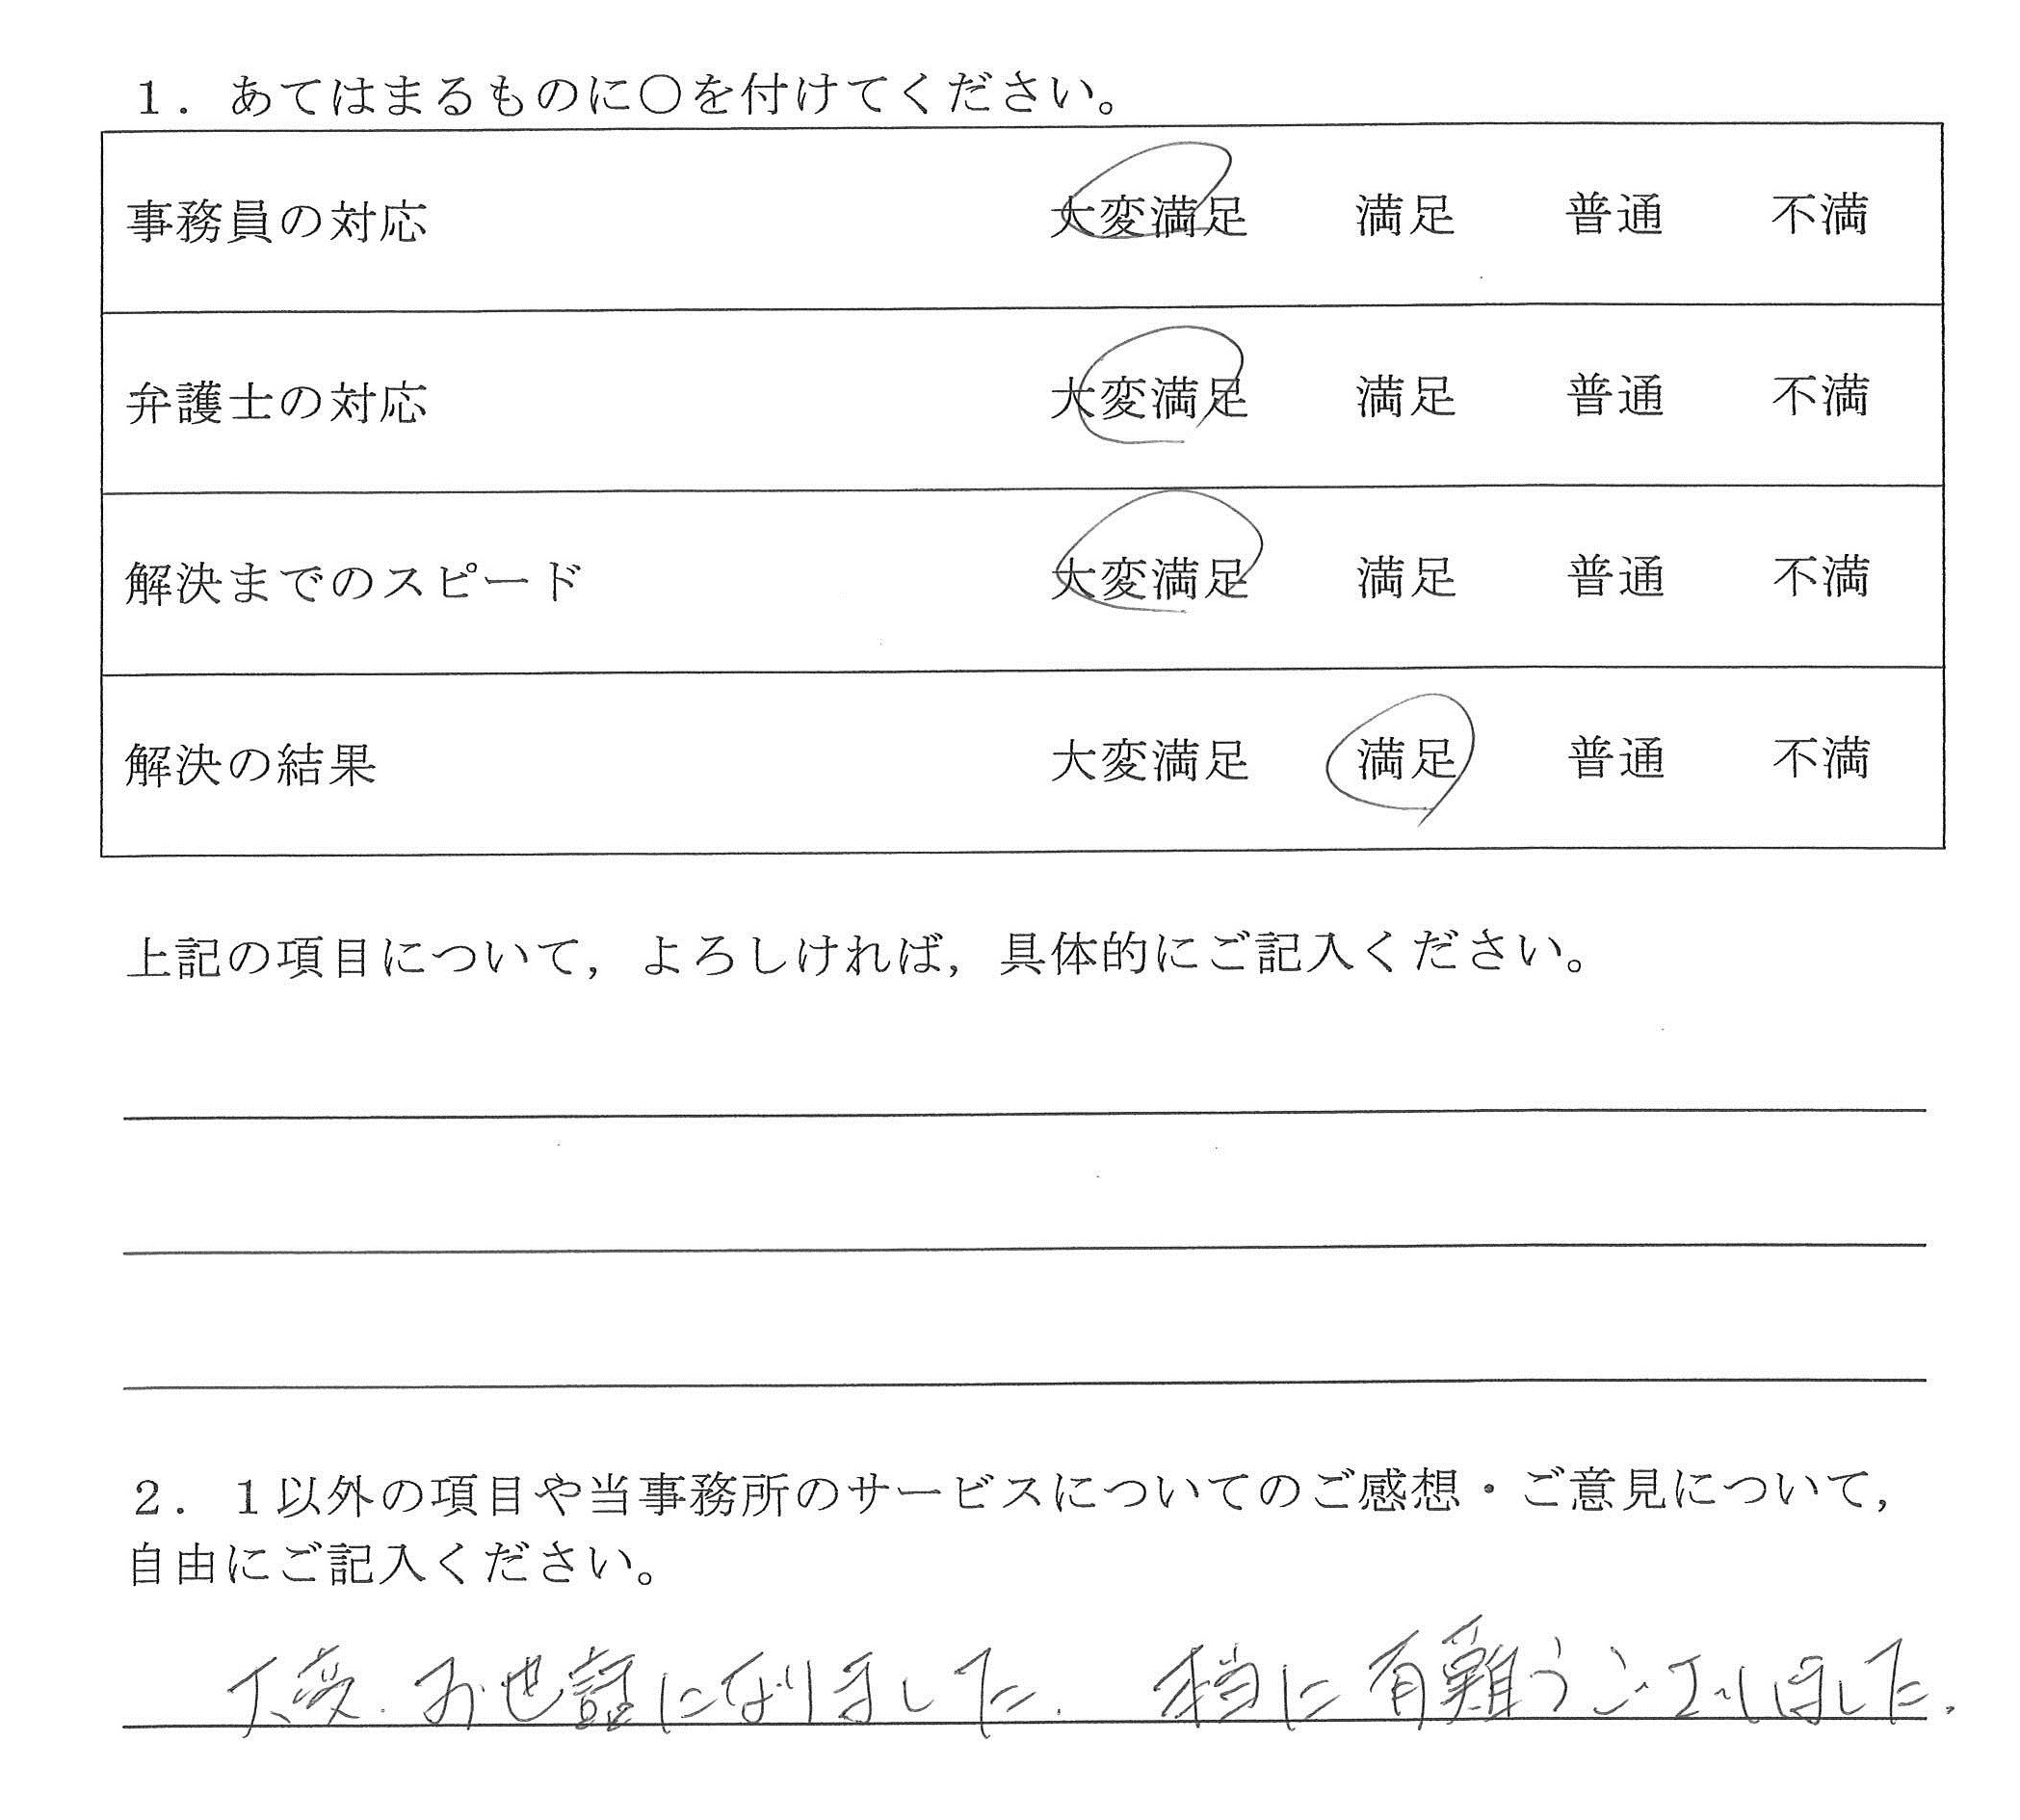 １．あてはまるものに○を付けてください。
事務員の対応 大変満足 満足 普通 不満
弁護士の対応 大変満足 満足 普通 不満
解決までのスピード 大変満足 満足 普通 不満
解決の結果 大変満足 満足 普通 不満
上記の項目について，よろしければ，具体的にご記入ください。
２．１以外の項目や当事務所のサービスについてのご感想・ご意見について，
自由にご記入ください。
大変お世話になりました。本当に有難うございました。